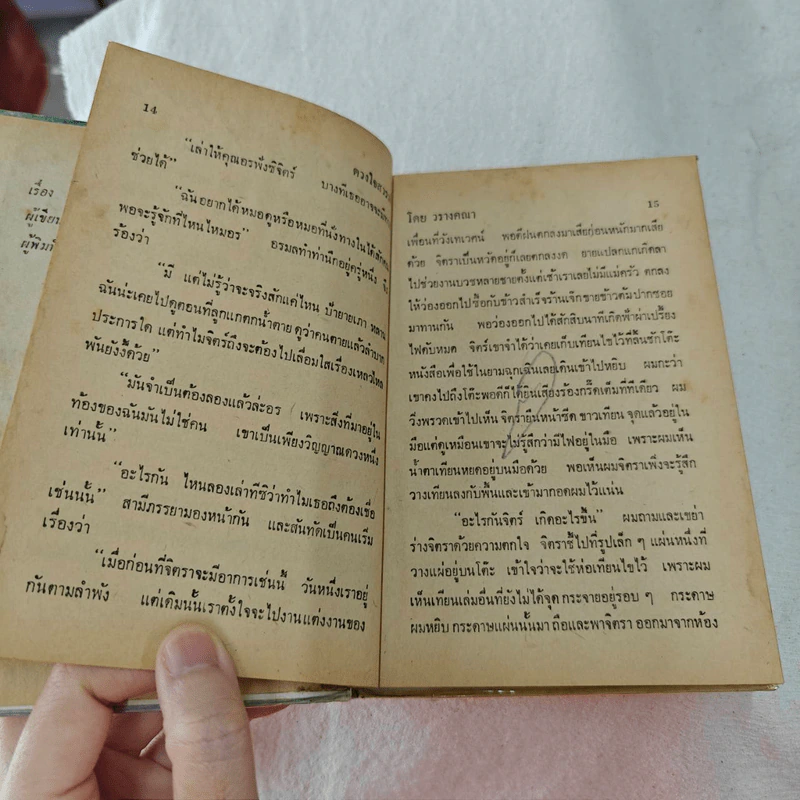 เรื่อง
ผู้เขียน
ผู้พิมพ์
14
ดวงใจสาว
"เล่าให้คุณอรฟังซิจิตร์ บางทีเธออาจจะมี
ช่วยได้"
"ฉันอยากได้หมอดูหรือหมอที่นั่งทางในได้สักคน
พอจะรู้จักที่ไหนไหมอร" อรมลทำท่านึกอยู่ครู่หนึ่ง จึง
ร้องว่า
"มี แต่ไม่รู้ว่าจะจริงสักแค่ไหน ป้ายายเภา หลาน
ฉันน่ะเคยไปดูตอนที่ลูกแกตกน้ำตาย ดูว่าคนตายแล้วลำบาก
ประการใด แต่ทำไมจิตร์ถึงจะต้องไปเลื่อมใสเรื่องเหลวไหล
พันยังงี้ด้วย"
"มันจำเป็นต้องลองแล้วล่ะอร เพราะสิ่งที่มาอยู่ใน
ท้องของฉันมันไม่ใช่คน เขาเป็นเพียงวิญญาณดวงหนึ่ง
เท่านั้น"
"อะไรกัน ไหนลองเล่าทีซิว่าทำไมเธอถึงต้องเชื่อ
เช่นนั้น" สามีภรรยามองหน้ากัน และสันทัดเป็นคนเริ่ม
เรื่องว่า
"เมื่อก่อนที่จิตราจะมีอาการเช่นนี้ วันหนึ่งเราอยู่
กันตามลำพัง แต่เดิมนั้นเราตั้งใจจะไปงานแต่งงานของ
โดย วรางคณา
15
เพื่อนที่วังเทเวศน์ พอดีฝนตกลงมาเสียก่อนหนักมากเสีย
ด้วย จิตราเป็นหวัดอยู่ก็เลยตกลงงด ยายแปลกแกเกิดลา
ไปช่วยงานบวชหลายชายตั้งแต่เช้าเราเลยไม่มีแม่ครัว ตกลง
ให้ว่องออกไปซื้อกับข้าวสำเร็จร้านเจ๊กขายข้าวต้มปากซอย
มาทานกัน พอว่องออกไปได้สักสิบนาทีเกิดฟ้าผ่าเปรี้ยง
ไฟดับหมด จิตร์เขาจำได้ว่าเคยเก็บเทียนไขไว้ที่ลิ้นชักโต๊ะ
หนังสือเพื่อใช้ในยามฉุกเฉินเลยเดินเข้าไปหยิบ ผมกะว่า
เขาคงไปถึงโต๊ะพอดีก็ได้ยินเสียงร้องกรี๊ดเต็มที่ทีเดียว ผม
วิ่งพรวดเข้าไปเห็น จิตรายืนหน้าซีด ขาวเทียน จุดแล้วอยู่ใน
มือแต่ดูเหมือนเขาจะไม่รู้สึกว่ามีไฟอยู่ในมือ เพราะผมเห็น
น้ำตาเทียนหยดอยู่บนมือด้วย พอเห็นผมจิตราเพิ่งจะรู้สึก
วางเทียนลงกับพื้นและเข้ามากอดผมไว้แน่น
"อะไรกันจิตร์ เกิดอะไรขึ้น" ผมถามและเขย่า
ร่างจิตราด้วยความตกใจ จิตราชี้ไปที่รูปเล็ก ๆ แผ่นหนึ่งที่
วางแผ่อยู่บนโต๊ะ เข้าใจว่าจะใช้ห่อเทียนไขไว้ เพราะผม
เห็นเทียนเล่มอื่นที่ยังไม่ได้จุด กระจายอยู่รอบ ๆ กระดาษ
ผมหยิบ กระดาษแผ่นนั้นมา ถือและพาจิตรา ออกมาจากห้อง